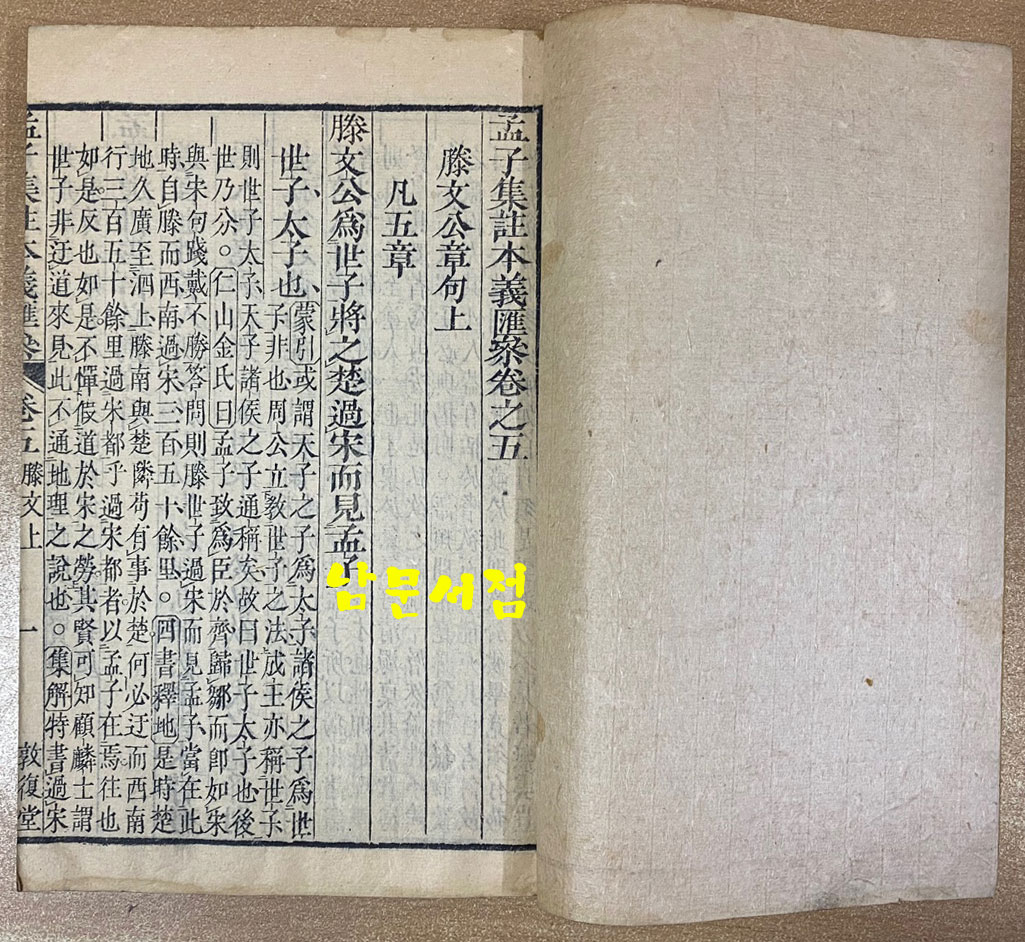 孟子集註本義匯叅卷之五
滕文公章句上
凡五章
滕文公爲世子將之楚過宋而見孟子
世子太子也
蒙引或謂天子之子爲太子諸侯之子爲世
子非也周公立教世子之法成王亦稱世子
則世子太子天子諸侯之子通稱矣故曰世子太子也後
世乃分○仁山金氏曰孟子致爲臣於齊歸鄒而卽如宋
與宋句踐戴不勝答問則滕世子過宋而見孟子當在此
時自滕而西南過宋三百五十餘里○四書釋地是時楚
地久廣至泗上滕南與楚隣苟有事於楚何必迂而西南
行三百五十餘里過宋都乎過宋都者以孟子在焉往也
如是反也如是不憚假道於宋之勞其賢可知顧麟士謂
世子非迂道來見此不通地理之說也○集解特書過宋
孟子集註本義匯叅 卷五 滕文上 一 敦復堂
남문서점